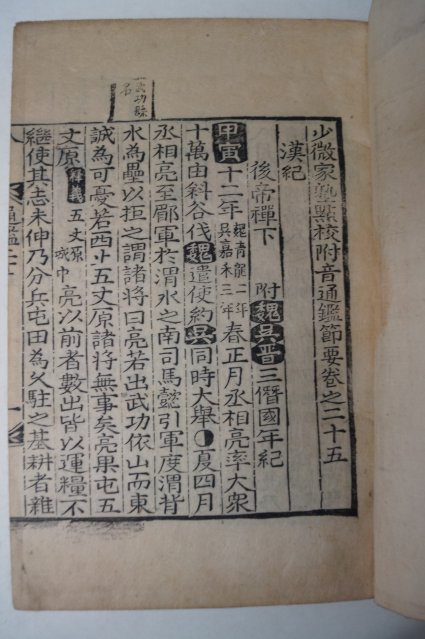 少微家塾點校附音通鑑節要卷之二十五
漢紀
後帝禪下 附魏吳晋三僭國年紀
甲寅十二年魏青龍二年吳嘉禾三年春正月丞相亮率大衆
十萬由斜谷伐魏遣使約吳同時大舉●夏四月
丞相亮至郿軍於渭水之南司馬懿引軍度渭背
水為壘以拒之謂諸將曰亮若出武功依山而東
誠為可憂若西上五丈原諸將無事矣亮果屯五
丈原釋義五丈原 亮以前者數出皆以運糧不
繼使其志未伸乃分兵屯田為久駐之基耕者雜
武功縣名
通鑑